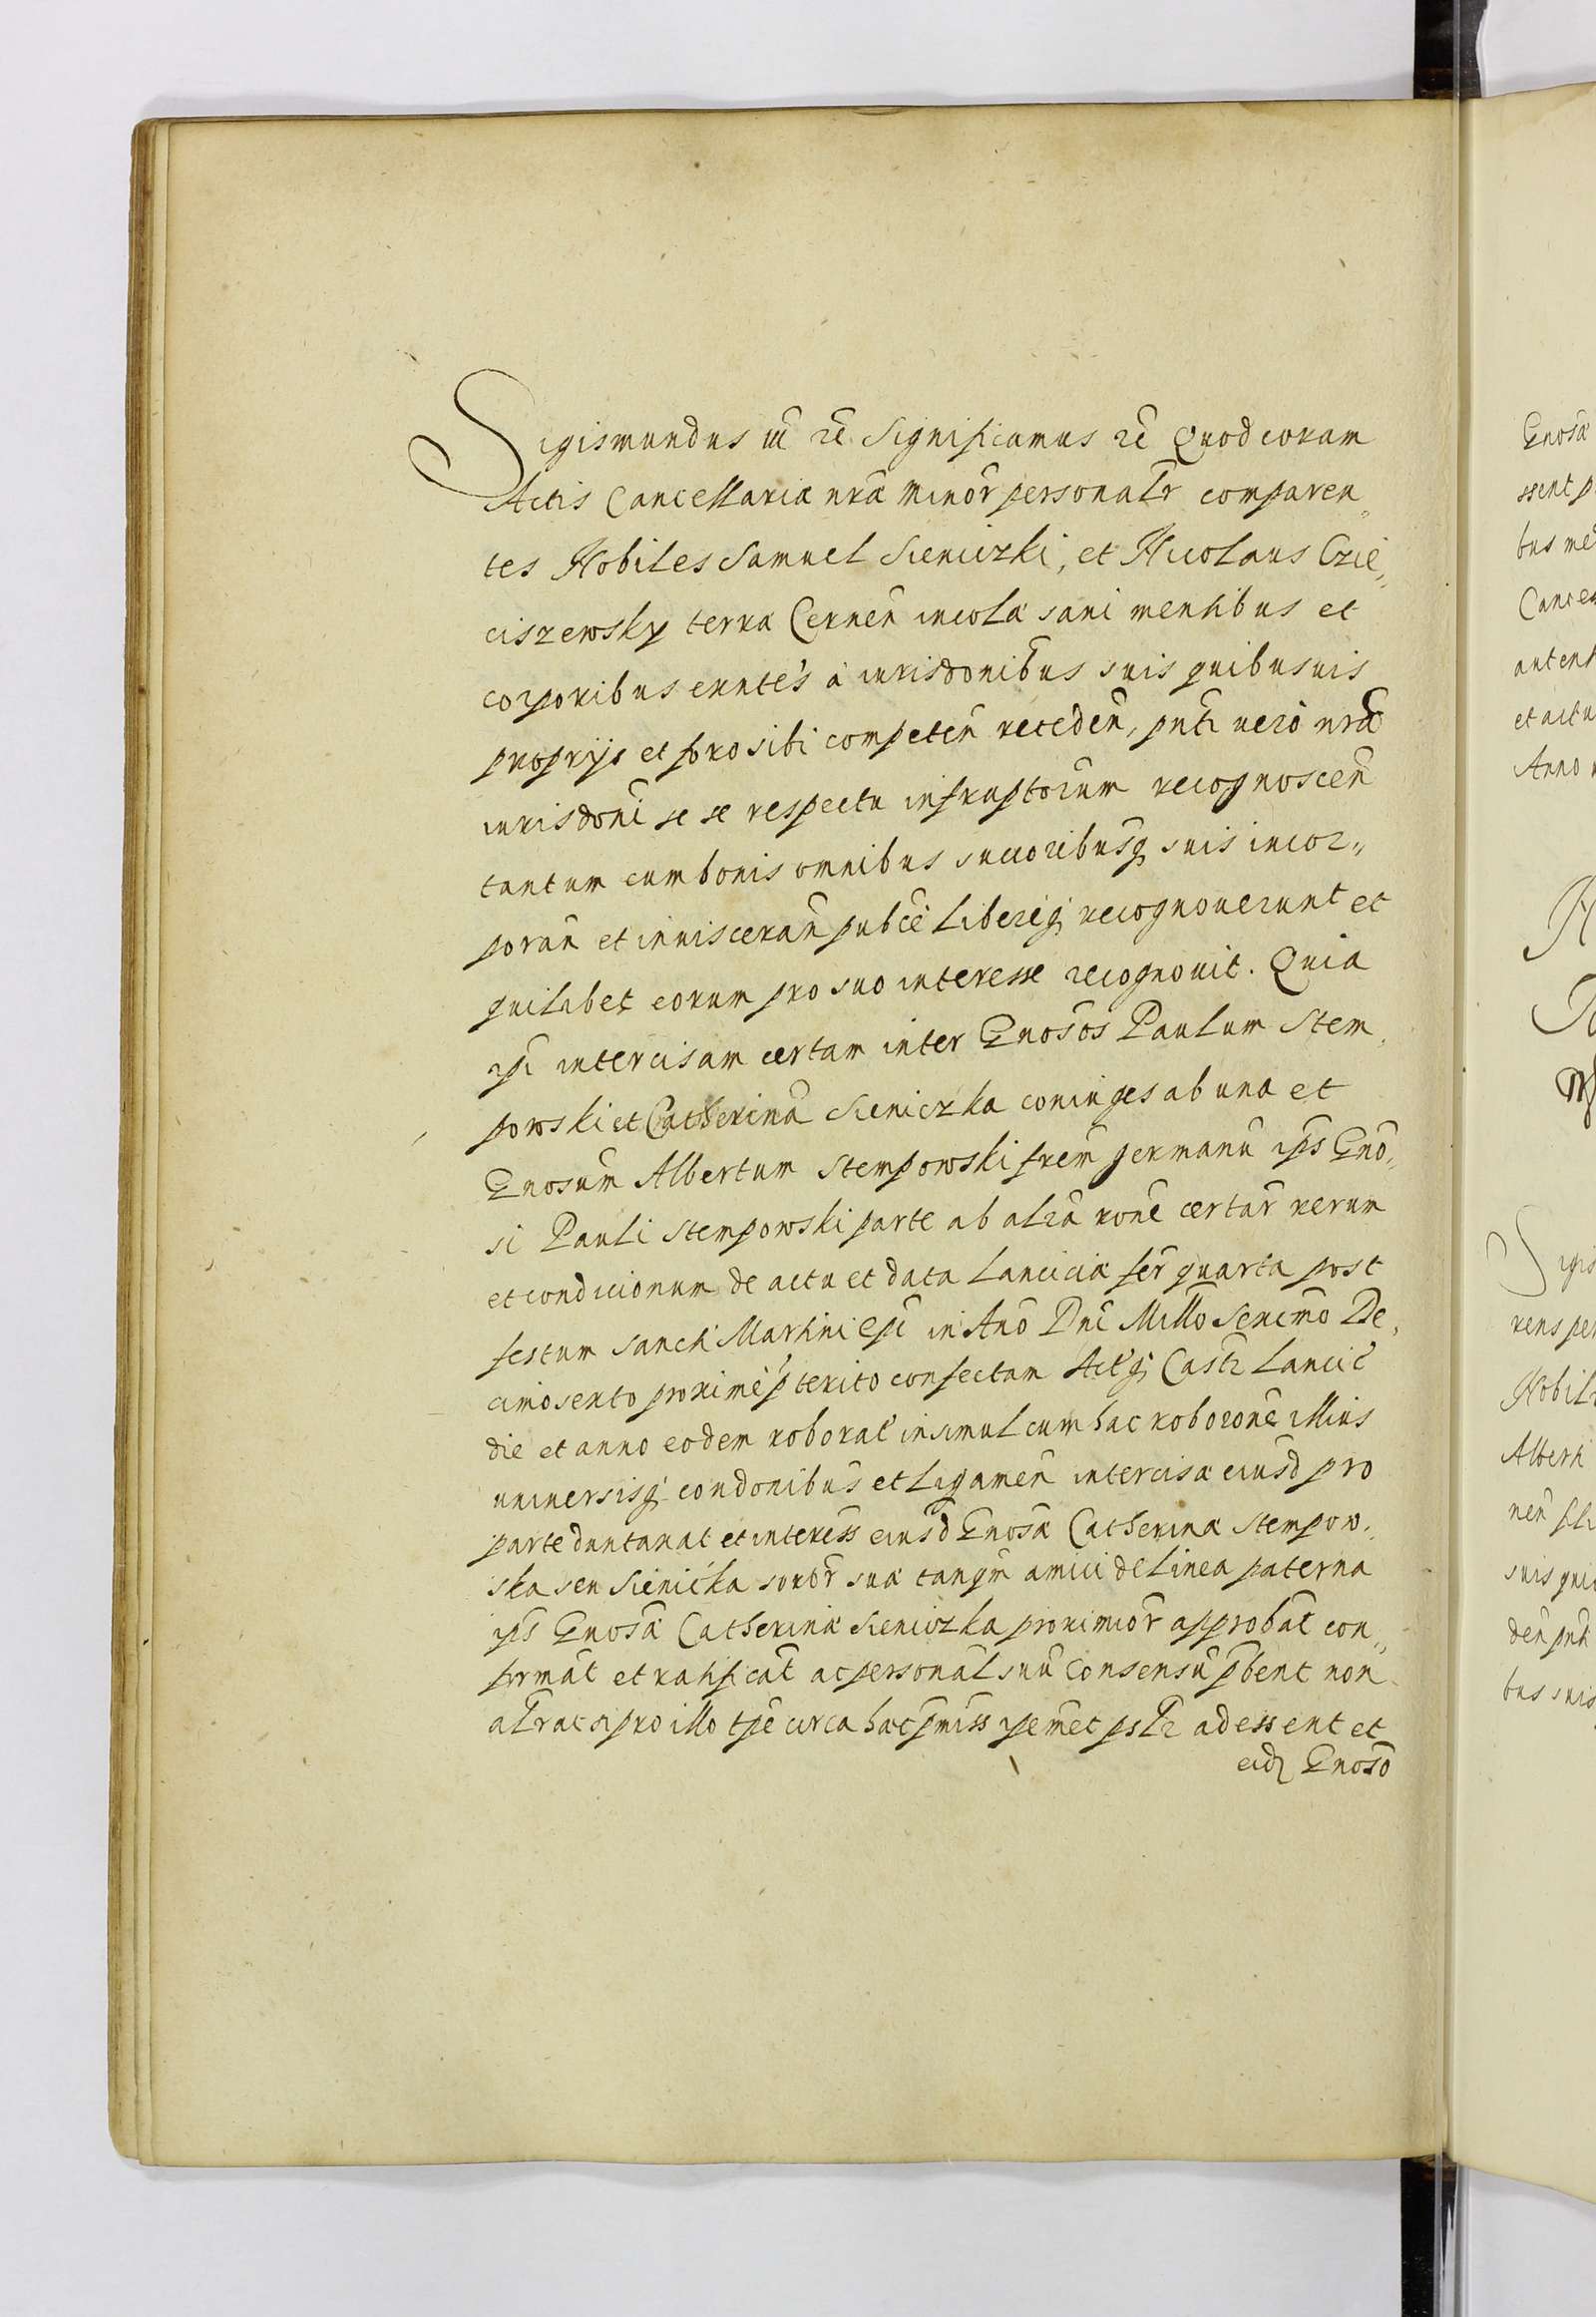 Sigismundus III etc. Significamus etc. Quod coram
Actis Cancellariæ nr̃æ minor̃ personalr̃ comparen„
tes Nobiles Samuel Sieniczki, et Nicolaus Crie„
ciszewsky terræ Cernen̄ incolæ sani mentibus et
corporibus exntes à iurisdōnibus suis quibusuis
proprijs et foro sibi competen̄ receden̄, pn̄ti uerò nr̃æ
iurisdōni se se respectu infrascptorum recognoscen̄
tantum cum bonis omnibus succoribusq̨ suis incor„
poran̄ et inuisceran̄ publcē liberèq̨ recognouerunt et
quilibet eorum pro suo interesse recognouit. Quia
ipi intercisam certam inter Gnōsos Paulum Stem„
powski et Catherinā Sieniczka coniuges ab una et
Gnōsum Albertum Stempowski frēm germanū ipīs Gnō„
si Pauli Stempowski parte ab alrã rōne certar̃ rerum
et condicionum de actu et data Lanciciæ fer̃ quarta post
festum Sancti Martini Epi in Ano Dni Millo Sexcmo De„
cimosexto proximè p̄terito confectam Actq̨ Castr̃ Lancic̄
die et anno eodem roborat̄ insimul cum hac roborōne illius
uniuersisq̨ condōnibus et ligamen̄ intercisæ eiusd̄ pro
parte duntaxat et interess̄ eiusd̄ Gnōsæ Catherinæ Stempow„
ska seu Sienic̄ka soror̃ suæ tanqm̄ amici de linea paterna
ipīs Gnōsæ Catherinæ Sieniczka proximior̃ approbat̄ con„
firmat̄ et ratificat̄ ac personal̃ suū Consensū p̄bent non
alr̃ ac si pro illo tpē circa hac p̄miss̄ ipēmet pslr̃ adessent et
eid̨ Gnōso
Gnōsæ
ssent p
bus me
Cance
autent
et actu
Anno
Sigis
rens per
Nobil
Alberti
nen̄ fi
suis qui
den̄ pn̄ti
bus suis